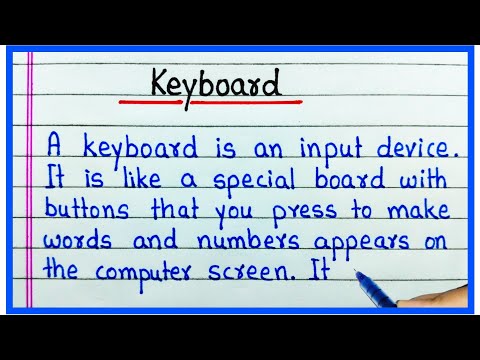 Keyboard
A keyboard is an input device.
It is like a special board with
buttons that you press to make
words and numbers appears on
the computer screen. It